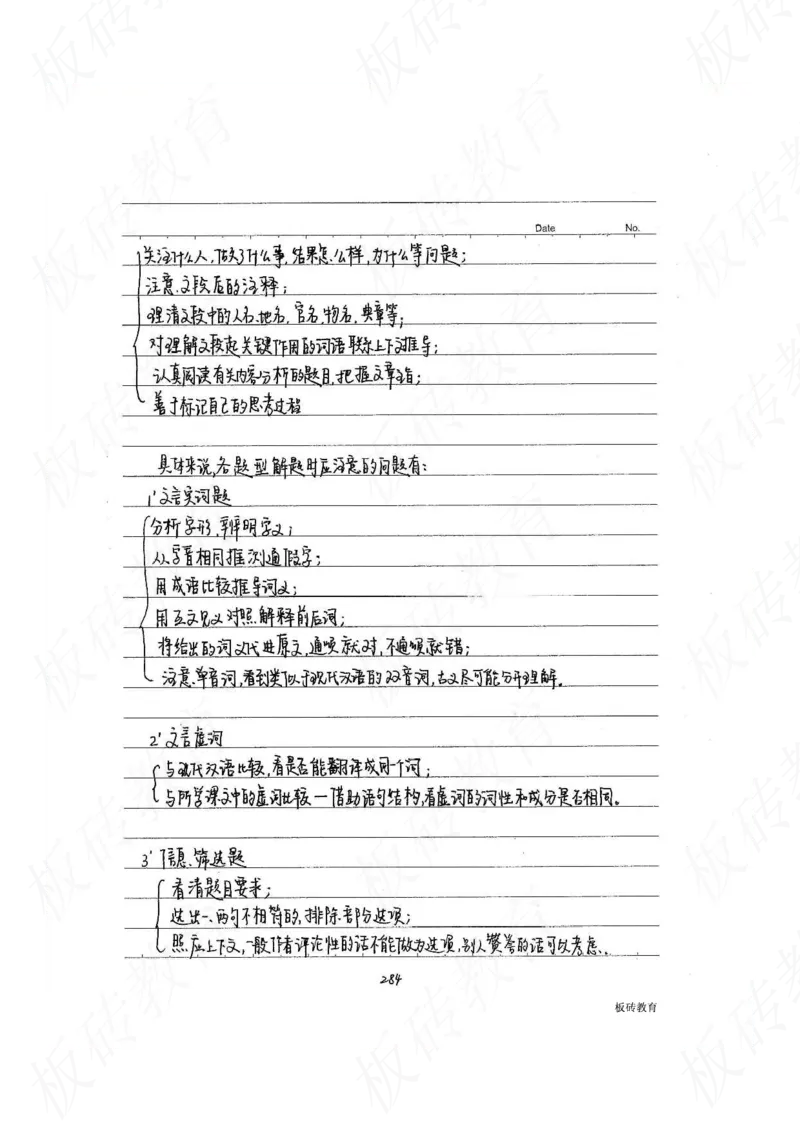 Date No.
关注什么人,做了什么事,结果怎么样,为什么等问题;
注意文段后的注释;
理清文段中的人名、地名,官名,物名,典章等;
对理解文段起关键作用的词语联系上下文推导;
认真阅读有关内容分析的题目,把握文章主旨;
善于标记自己的思考过程
具体来说,各题型解题时应注意的问题有:
1' 文言实词题
分析字形,辨明字义;
从字音相同推测通假字;
用成语比较推导词义;
用互文见义对照解释前后词;
将给出的词义代进原文,通顺就对,不通顺就错;
注意单音词,看到类似于现代汉语的双音词,古义尽可能分开理解。
2' 文言虚词
与现代汉语比较,看是否能翻译成同一个词;
与所学课文中的虚词比较—借助语句结构,看虚词的词性和成分是否相同。
3' 信息筛选题
看清题目要求;
选出一、两句不相符的,排除部分选项;
照应上下文,一般作者评论性的话不能做为选项,别人赞誉的话可以考虑。
284
板砖教育